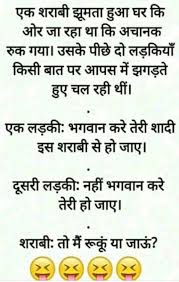 एक शराबी झूमता हुआ घर कि
ओर जा रहा था कि अचानक
रुक गया। उसके पीछे दो लड़कियाँ
किसी बात पर आपस में झगड़ते
हुए चल रही थीं।
.
एक लड़की: भगवान करे तेरी शादी
इस शराबी से हो जाए।
.
दूसरी लड़की: नहीं भगवान करे
तेरी हो जाए।
.
शराबी: तो मैं रूकूं या जाऊं?
😝😝😝😝